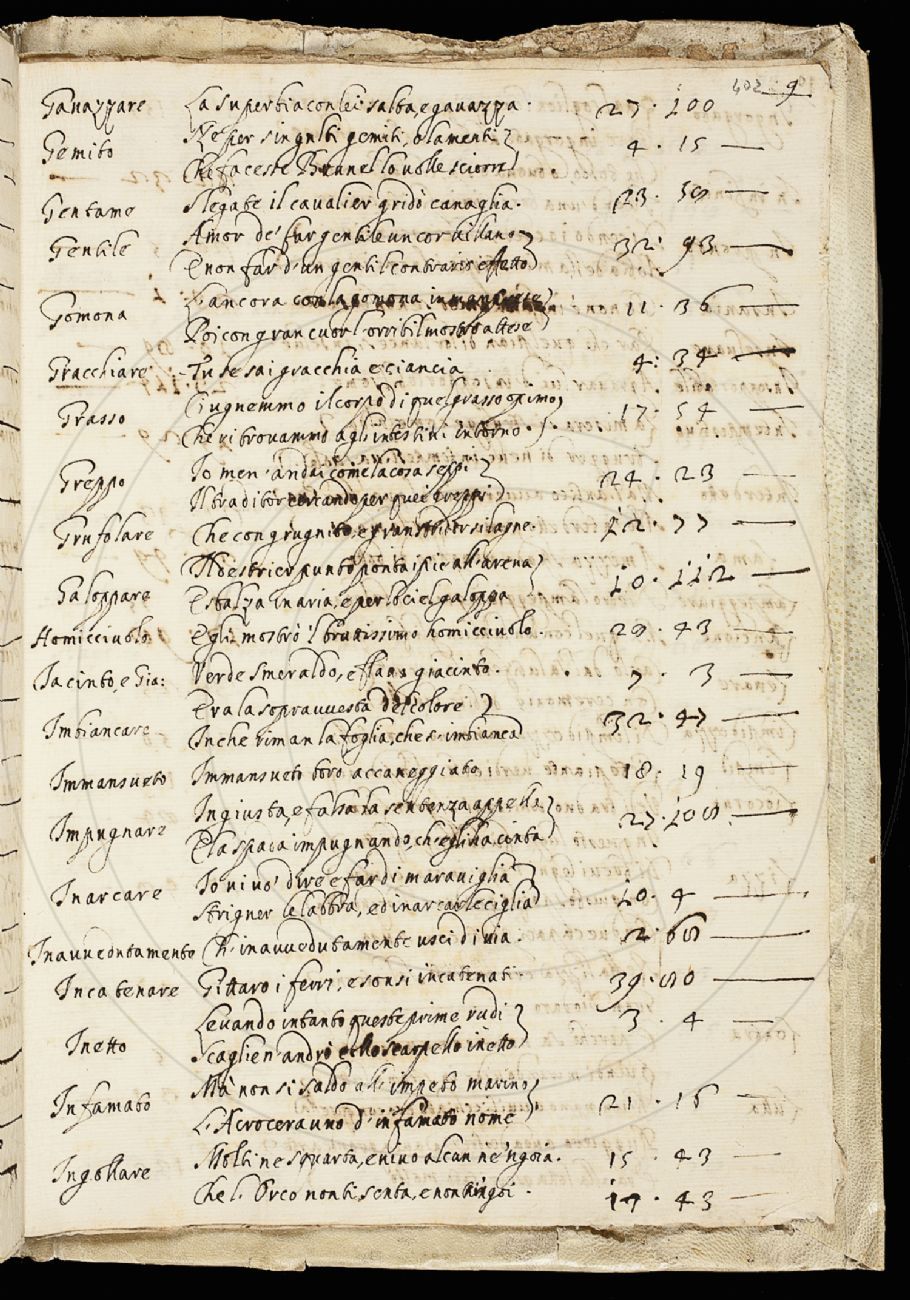 402 9
Gauazzare La superbia con lei salta, e gauazza. 27. 100
Gemito Ne per singulti gemiti, o lamenti 4. 15
Che facesse Brunello uolle sciorre
Gentame Slegate il caualier gridò canaglia. 23. 58
Gentile Amor de' far gentile un cor uillano 32. 93
E non far d'un gentil contrario effetto
Gomona L'ancora con la gomona in 11. 36
Poi con gran cuor l'orribil mostro attese
Gracchiare Tu te sai gracchia e ciancia 4. 34
Grasso Giugnemmo il corpo di quel grasso opimo 17. 54
Che ritrouammo agli intestini intorno.
Greppo Io men' andai come la cosa seppi 24. 23
Il traditor cercando per quei greppi
Grufolare Che con grugnito, e gran stridor si lagne. 12. 77
Galoppare Il destrier punto ponta i piè all'arena 10. 112
E sbalza in aria, e per lo ciel galoppa
Homicciuolo E gli mostrò 'l bruttissimo homicciuolo. 28. 43
Iacinto, e Gia: Verde smeraldo, e flauo giacinto. 7. 3
Imbiancare Era la soprauuesta del colore 32. 47
In che riman la foglia, che s'imbianca
Immansueto Immansueto toro accaneggiato. 18. 19
Impugnare Ingiusta, e falsa la sentenza appella 27. 108
E la spada impugnando, ch'egli ha cinta
Inarcare Io ui uo' dire e far di marauiglia 10. 4
Strigner le labbra, ed inarcar le ciglia
Inauuedutamente Ch' inauuedutamente uscì di uia. 2. 68
Incatenare Gittaro i ferri, e sonsi incatenati. 39. 80
Inetto Leuando intanto queste prime rudi 3. 4
Scaglie n'andrò collo scarpello inetto
Infamato Ma non si saldo all'impeto marino 21. 16
L'Acrocerauno d'infamato nome
Ingoiare Molti ne squarta, e uiuo alcun ne 'ngoia. 15. 43
Che l'Orco non ti senta, e non t'ingoi. 17. 43